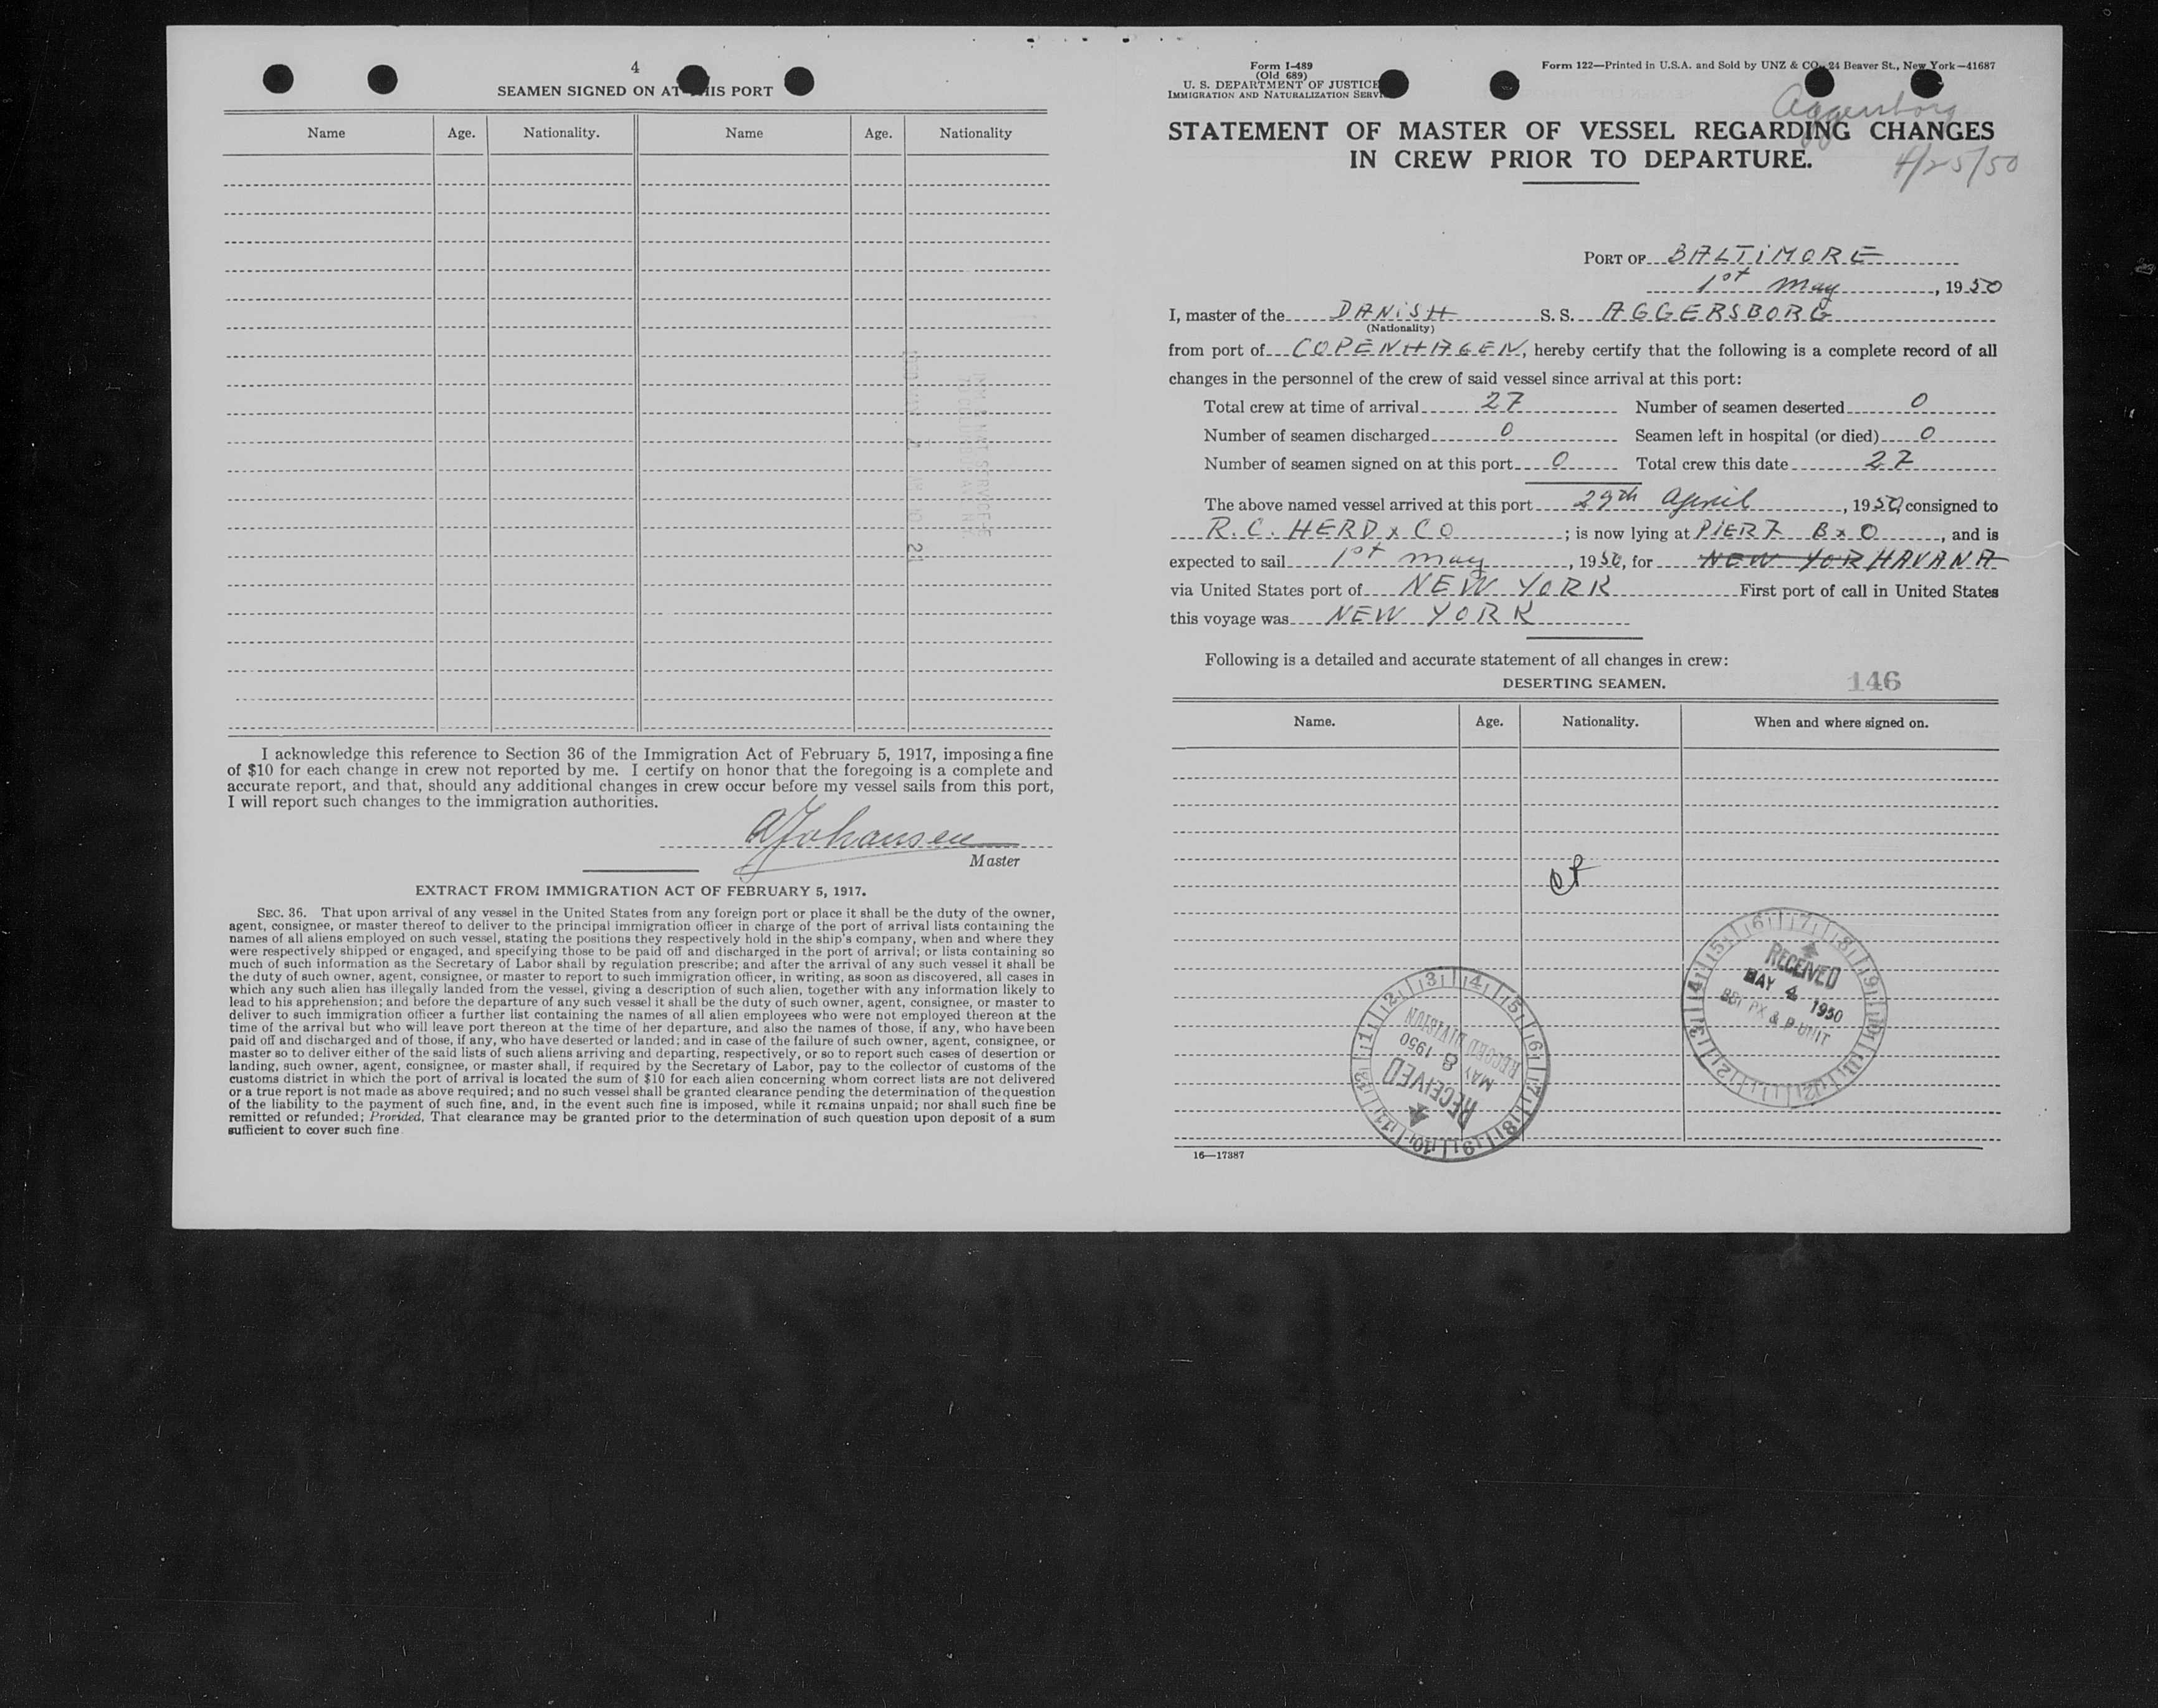 4
SEAMEN SIGNED ON AT THIS PORT
Name Age. Nationality. Name Age. Nationality
I acknowledge this reference to Section 36 of the Immigration Act of February 5, 1917, imposing a fine
of $10 for each change in crew not reported by me. I certify on honor that the foregoing is a complete and
accurate report, and that, should any additional changes in crew occur before my vessel sails from this port,
I will report such changes to the immigration authorities.
AJohansen
Master
EXTRACT FROM IMMIGRATION ACT OF FEBRUARY 5, 1917.
SEC. 36. That upon arrival of any vessel in the United States from any foreign port or place it shall be the duty of the owner,
agent, consignee, or master thereof to deliver to the principal immigration officer in charge of the port of arrival lists containing the
names of all aliens employed on such vessel, stating the positions they respectively hold in the ship's company, when and where they
were respectively shipped or engaged, and specifying those to be paid off and discharged in the port of arrival; or lists containing so
much of such information as the Secretary of Labor shall by regulation prescribe; and after the arrival of any such vessel it shall be
the duty of such owner, agent, consignee, or master to report to such immigration officer, in writing, as soon as discovered, all cases in
which any such alien has illegally landed from the vessel, giving a description of such alien, together with any information likely to
lead to his apprehension; and before the departure of any such vessel it shall be the duty of such owner, agent, consignee, or master to
deliver to such immigration officer a further list containing the names of all alien employees who were not employed thereon at the
time of the arrival but who will leave port thereon at the time of her departure, and also the names of those, if any, who have been
paid off and discharged and of those, if any, who have deserted or landed; and in case of the failure of such owner, agent, consignee, or
master so to deliver either of the said lists of such aliens arriving and departing, respectively, or so to report such cases of desertion or
landing, such owner, agent, consignee, or master shall, if required by the Secretary of Labor, pay to the collector of customs of the
customs district in which the port of arrival is located the sum of $10 for each alien concerning whom correct lists are not delivered
or a true report is not made as above required; and no such vessel shall be granted clearance pending the determination of the question
of the liability to the payment of such fine, and, in the event such fine is imposed, while it remains unpaid; nor shall such fine be
remitted or refunded; Provided, That clearance may be granted prior to the determination of such question upon deposit of a sum
sufficient to cover such fine.
Form I-489
(Old 689)
U. S. DEPARTMENT OF JUSTICE
IMMIGRATION AND NATURALIZATION SERVI
Form 122—Printed in U.S.A. and Sold by UNZ & CO., 24 Beaver St., New York—41687
Aggersborg
STATEMENT OF MASTER OF VESSEL REGARDING CHANGES
IN CREW PRIOR TO DEPARTURE.
4/25/50
PORT OF BALTIMORE
1st May, 1950
I, master of the DANISH S. S. AGGERSBORG
(Nationality)
from port of COPENHAGEN, hereby certify that the following is a complete record of all
changes in the personnel of the crew of said vessel since arrival at this port:
Total crew at time of arrival 27 Number of seamen deserted 0
Number of seamen discharged 0 Seamen left in hospital (or died) 0
Number of seamen signed on at this port 0 Total crew this date 27
The above named vessel arrived at this port 29th April, 1950, consigned to
R. C. HERD & CO; is now lying at PIER 7 B & O, and is
expected to sail 1st May, 1950, for NEW YOR HAVANA
via United States port of NEW YORK First port of call in United States
this voyage was NEW YORK
Following is a detailed and accurate statement of all changes in crew:
DESERTING SEAMEN.
146
Name. Age. Nationality. When and where signed on.
RECEIVED
MAY 4 1950
PX & P UNIT
RECEIVED
MAY 8 1950
RECORD DIVISION
16—17387